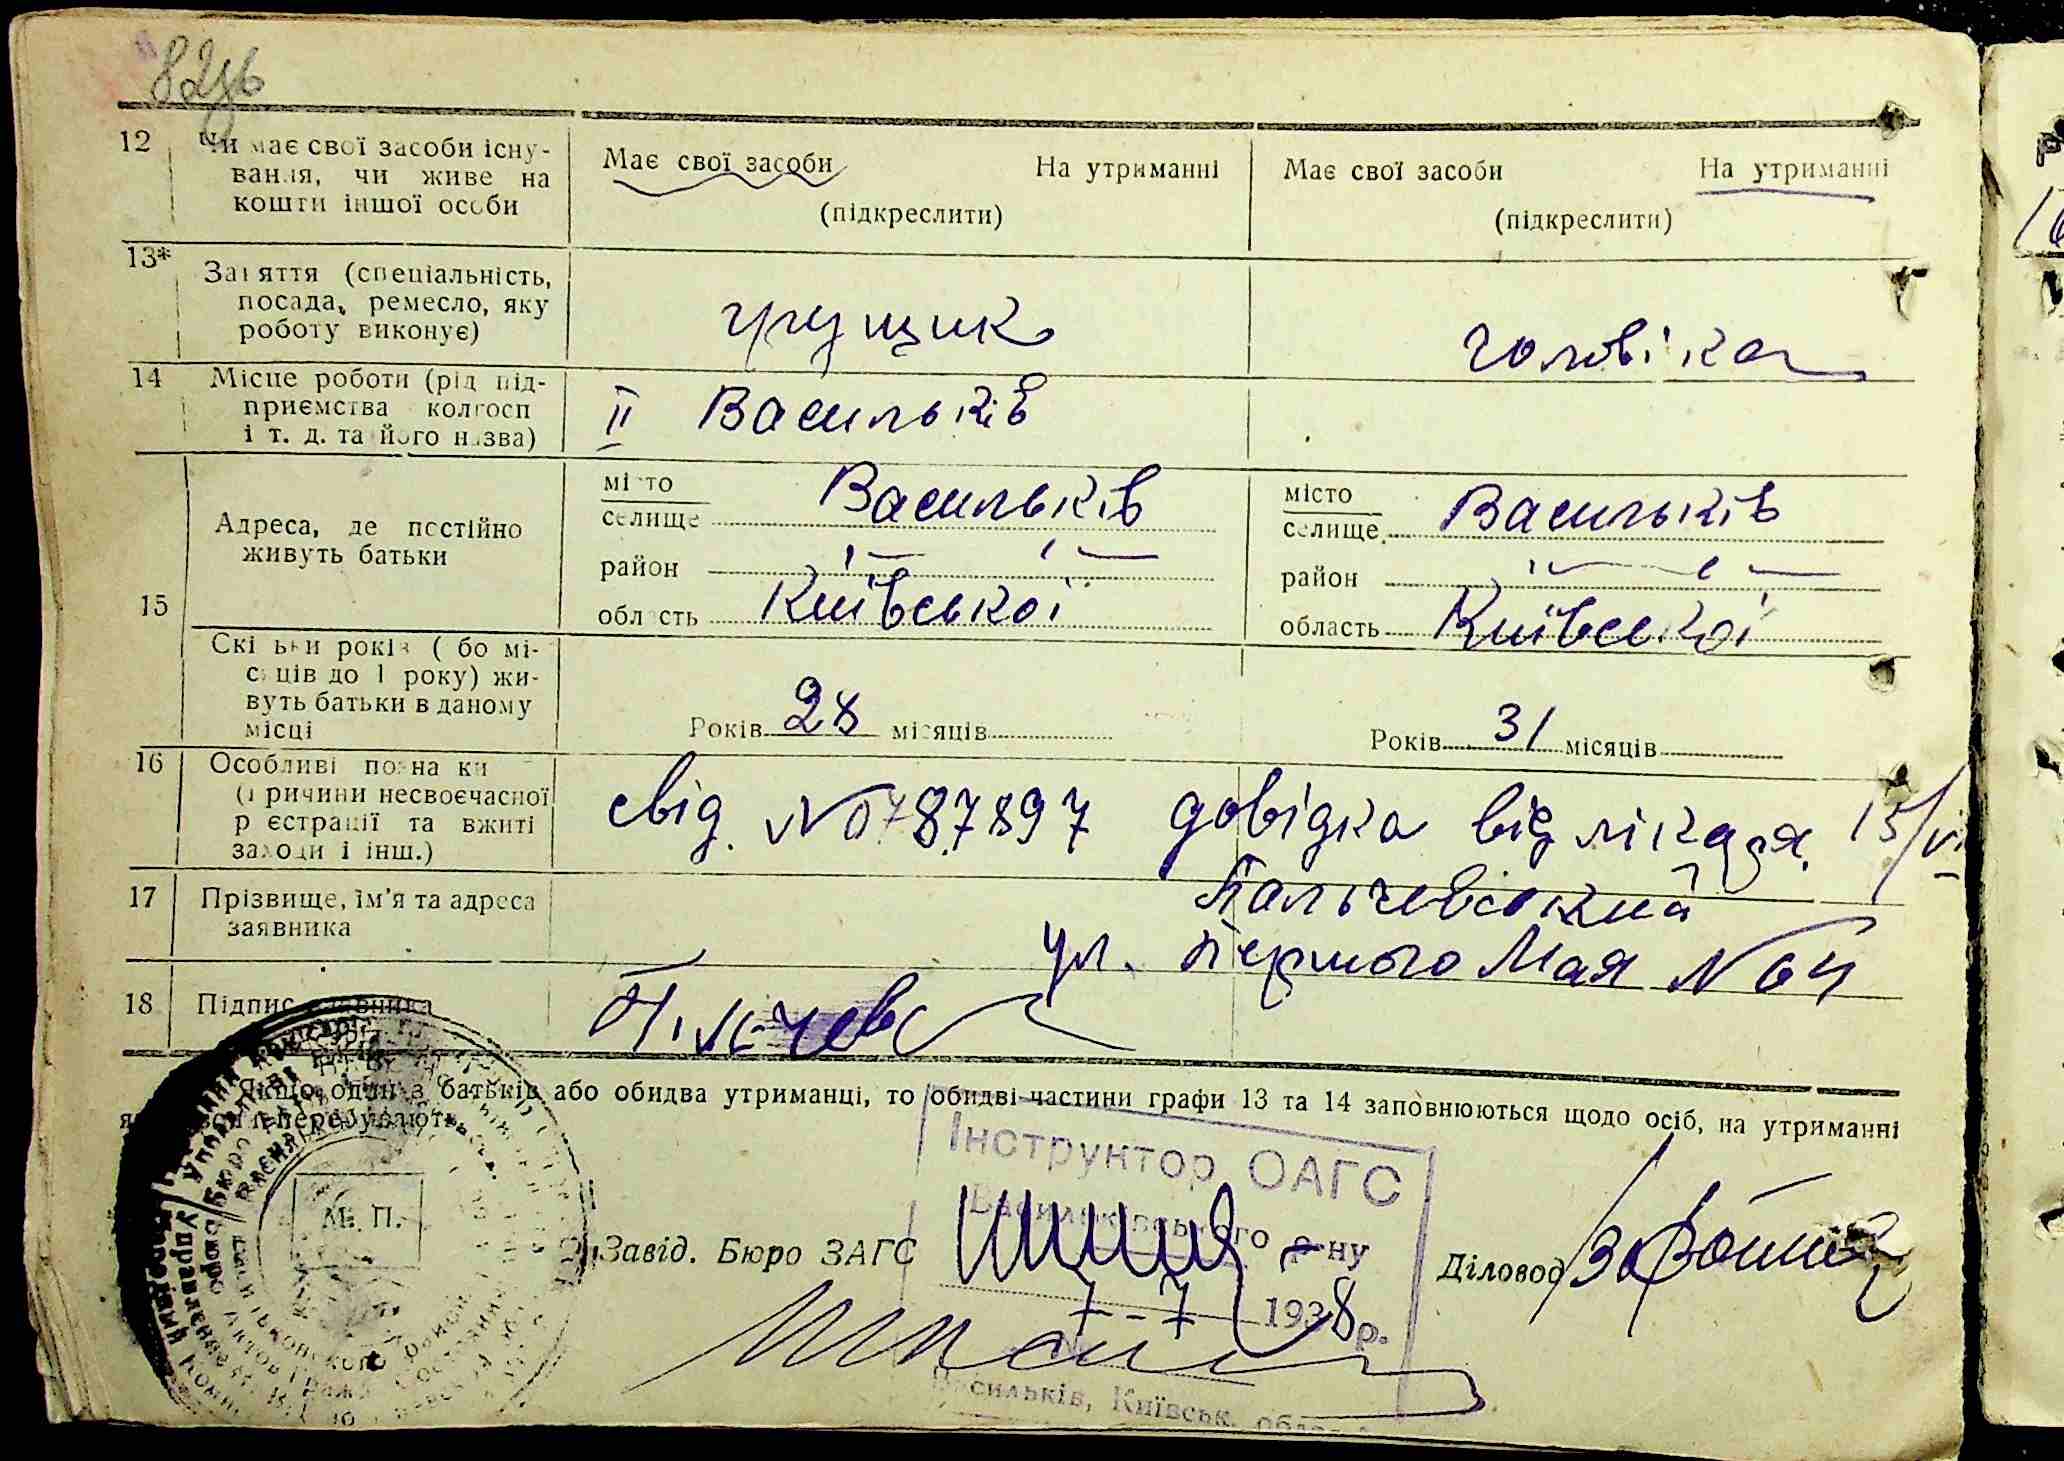 82 зв
12 Чи має свої засоби існу-
вання, чи живе на
кошти іншої особи
Має свої засоби На утриманні
(підкреслити)
Має свої засоби На утриманні
(підкреслити)
13* Заняття (спеціальність,
посада, ремесло, яку
роботу виконує)
грущик
чоловіка
14 Місце роботи (рід під-
приємства колгосп
і т. д. та його назва)
ІІ Васильків
15 Адреса, де постійно
живуть батьки
місто
селище Васильків
район
область Київської
місто
селище Васильків
район
область Київської
Скільки років (або мі-
сяців до 1 року) жи-
вуть батьки в даному
місці
Років 28 місяців
Років 31 місяців
16 Особливі познаки
(причини несвоєчасної
реєстрації та вжиті
заходи і інш.)
свід. № 787897 довідка від лікаря 15/VI
17 Прізвище, ім'я та адреса
заявника
Пальчевський
ул. Первого Мая № 64
18 Підпис заявника
Пальчевс
Якщо один з батьків або обидва утриманці, то обидві частини графи 13 та 14 заповнюються щодо осіб, на утриманні
яких вони перебувають.
М. П.
Завід. Бюро ЗАГС
Діловод
Інструктор ОАГС
Васильківського р-ну
7-7 1938 р.
№
Васильків, Київськ. област